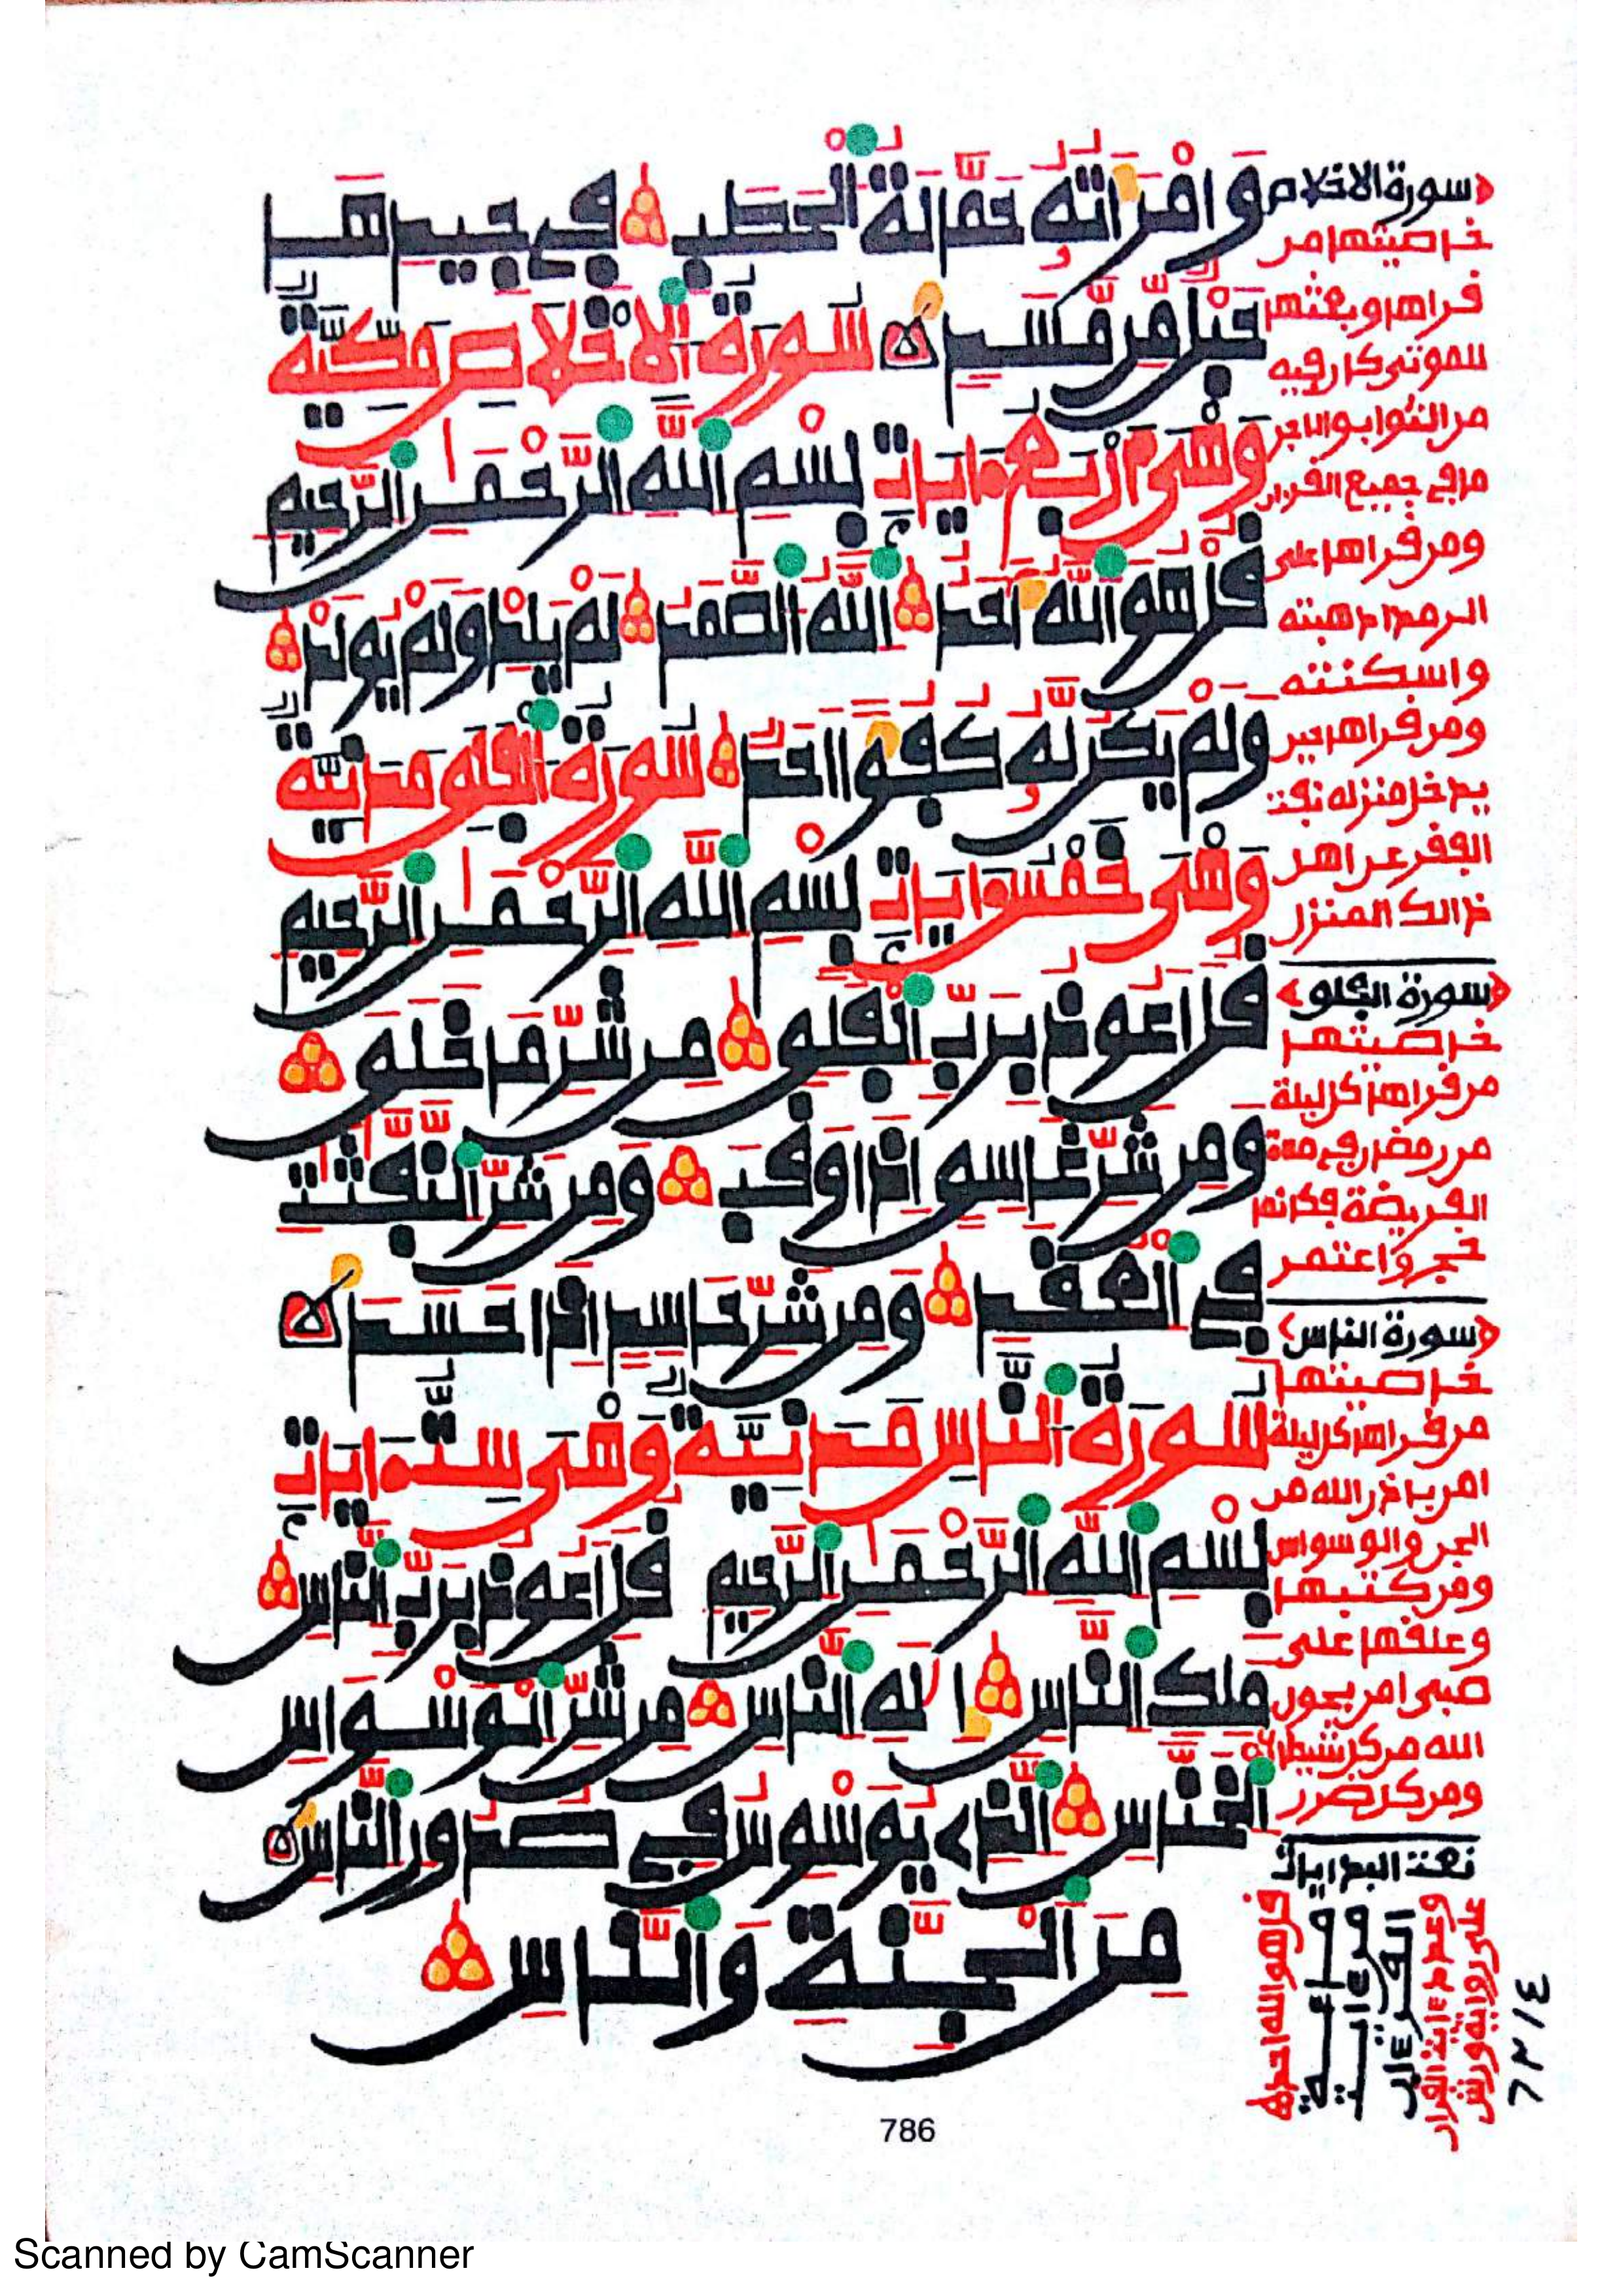 وَامْرَأَتُهُ حَمَّالَةَ الْحَطَبِ فِي جِيدِهَا
حَبْلٌ مِّن مَّسَدٍ سُورَةُ الْإِخْلَاصِ مَكِّيَّةٌ
وَهْيَ أَرْبَعُ ءَايَاتٍ بِسْمِ اللَّهِ الرَّحْمَٰنِ الرَّحِيمِ
قُلْ هُوَ اللَّهُ أَحَدٌ اللَّهُ الصَّمَدُ لَمْ يَلِدْ وَلَمْ يُولَدْ
وَلَمْ يَكُن لَّهُ كُفُؤًا أَحَدٌ سُورَةُ الْفَلَقِ مَدَنِيَّةٌ
وَهْيَ خَمْسُ ءَايَاتٍ بِسْمِ اللَّهِ الرَّحْمَٰنِ الرَّحِيمِ
قُلْ أَعُوذُ بِرَبِّ الْفَلَقِ مِن شَرِّ مَا خَلَقَ
وَمِن شَرِّ غَاسِقٍ إِذَا وَقَبَ وَمِن شَرِّ النَّفَّٰثَٰتِ
فِي الْعُقَدِ وَمِن شَرِّ حَاسِدٍ إِذَا حَسَدَ
سُورَةُ النَّاسِ مَدَنِيَّةٌ وَهْيَ سِتُّ ءَايَاتٍ
بِسْمِ اللَّهِ الرَّحْمَٰنِ الرَّحِيمِ قُلْ أَعُوذُ بِرَبِّ النَّاسِ
مَلِكِ النَّاسِ إِلَٰهِ النَّاسِ مِن شَرِّ الْوَسْوَاسِ
الْخَنَّاسِ الَّذِي يُوَسْوِسُ فِي صُدُورِ النَّاسِ
مِنَ الْجِنَّةِ وَالنَّاسِ
سورة الاخلاص
خاصيتها من
قراها وبعثها
للموتى كان فيه
من الثواب والاجر
ما في جميع القرءان
ومن قراها على
واسكنته
ومن قراها حين
يدخل منزله نفت
الفقر عن اهل
ذالك المنزل
سورة الفلق
خاصيتها
من قراها كل ليلة
من رمضان في مدة
الفريضة فكانما
حج واعتمر
سورة الناس
خاصيتها
من قراها كل ليلة
امن باذن الله من
الجن والوسواس
ومن كتبها
وعلقها على
صبي امن بعون
الله من كل شيطان
ومن كل ضرر
قل هو الله احد
وعدد ءايات القرءان
على رواية ورش
٦٢١٤
786
Scanned by CamScanner